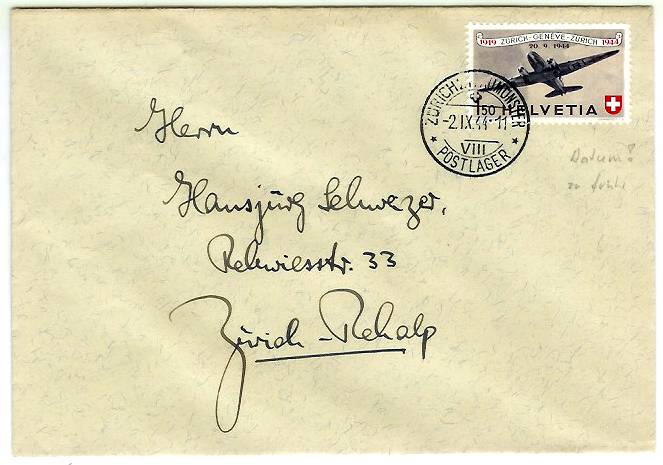 1919 ZÜRICH-GENÈVE-ZÜRICH 1944
20. 9. 1944
1.50 HELVETIA
ZÜRICH
-2.IX.44-11
VIII
POSTLAGER
Datum?
zu frühe
Herrn
Hansjürg Schwezer,
Rehwiesstr. 33
Zürich-Rehalp